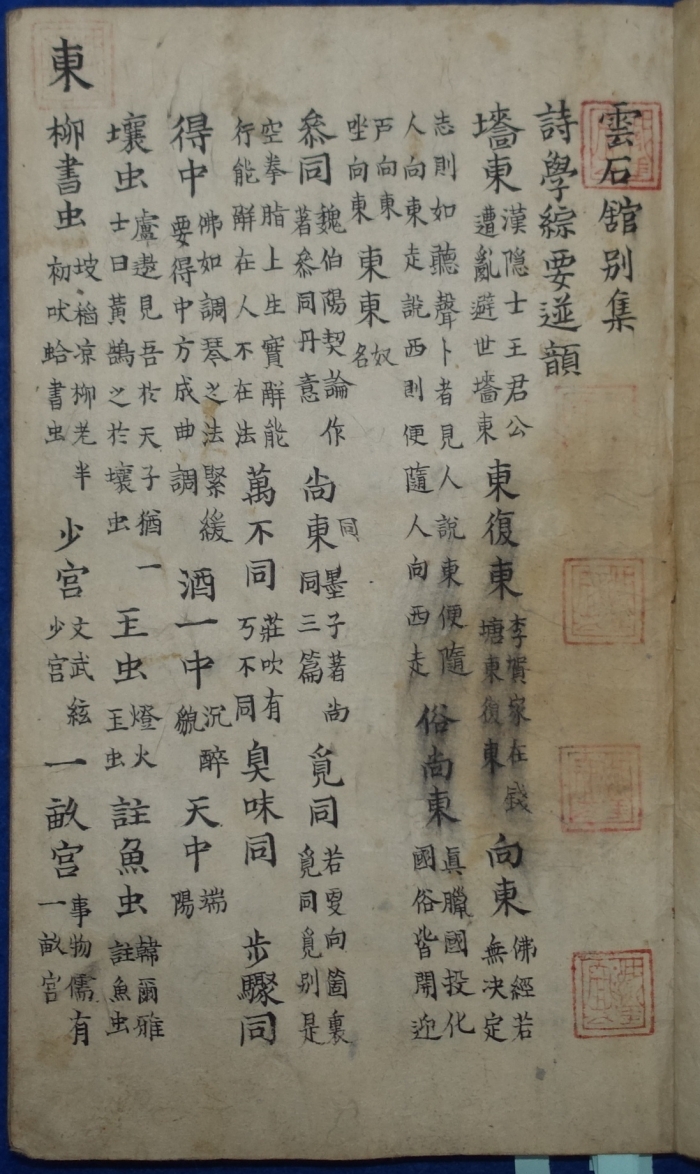 雲石舘別集
詩學綜要迸韻
墻東 漢隐士王君公遭亂避世墻東 東復東 李賓家在錢塘東復東 向東 佛經若無决定
志則如聽聲卜者見人說東便隨人向東走說西則便隨人向西走 俗尚東 眞臘國投化國俗皆開迎
戶向東坐向東 東東 奴名
叅同 魏伯陽契論作著叅同丹意 尚東 同 墨子著尚同三篇 覓同 若更向箇裏覓同覓別是
空拳脂上生實觧能行能觧在人不在法 萬不同 莊吹有万不同 臭味同 步驟同
得中 佛如調琴之法緊緩要得中方成曲調 酒一中 沉醉貌 天中 端陽
壤虫 盧遨見吾於天子猶一士曰黃鵠之於壤虫 玉虫 燈火玉虫 註魚虫 韓爾雅註魚虫
柳書虫 坡稻凉柳老半初吠蛤書虫 少宮 文武絃少宮 一畝宮 事物儒有一畝宮
東